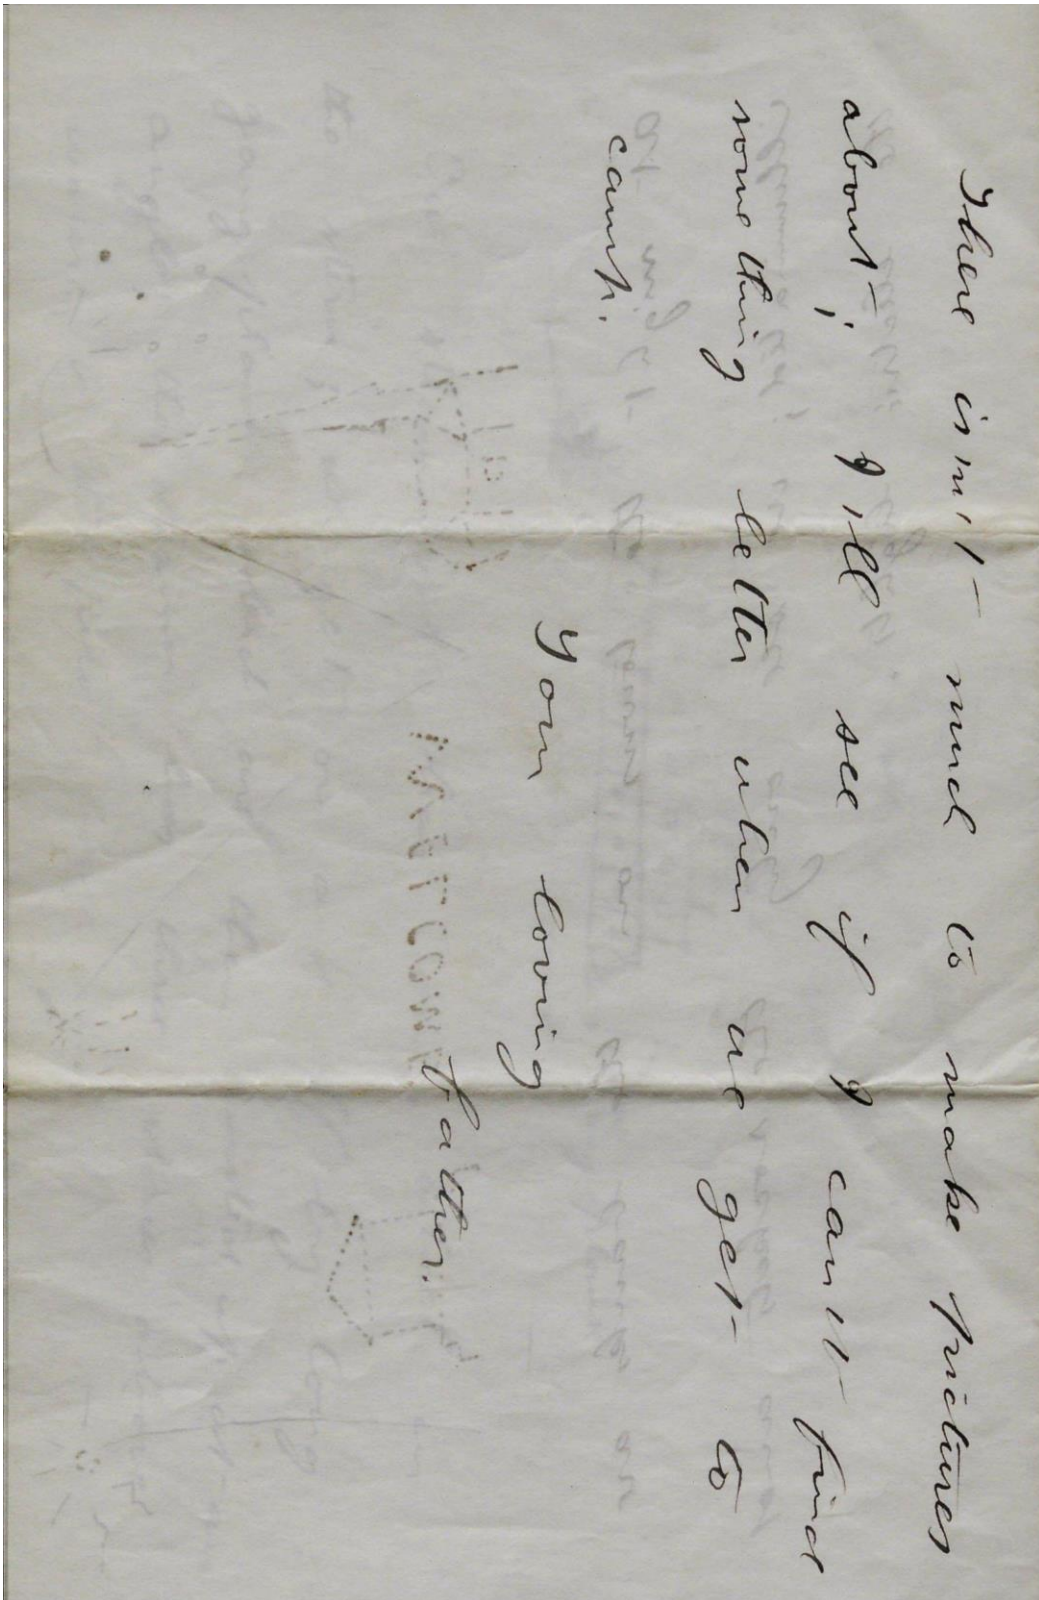 There isn't much to make pictures
about; I'll see if I can't find
something better when we get to
camp.
Your loving
Father.